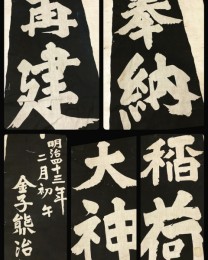 奉納
再建
稲荷
大神
明治四十三年
二月初午
金子熊治